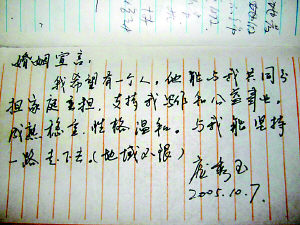 婚姻宣言:
我希望有一个人。他能与我共同分
担家庭重担,支持我写作和公益事业。
成熟稳重,性格温和。与我能坚持
一路走下去。(地域不限)
2005.10.7.